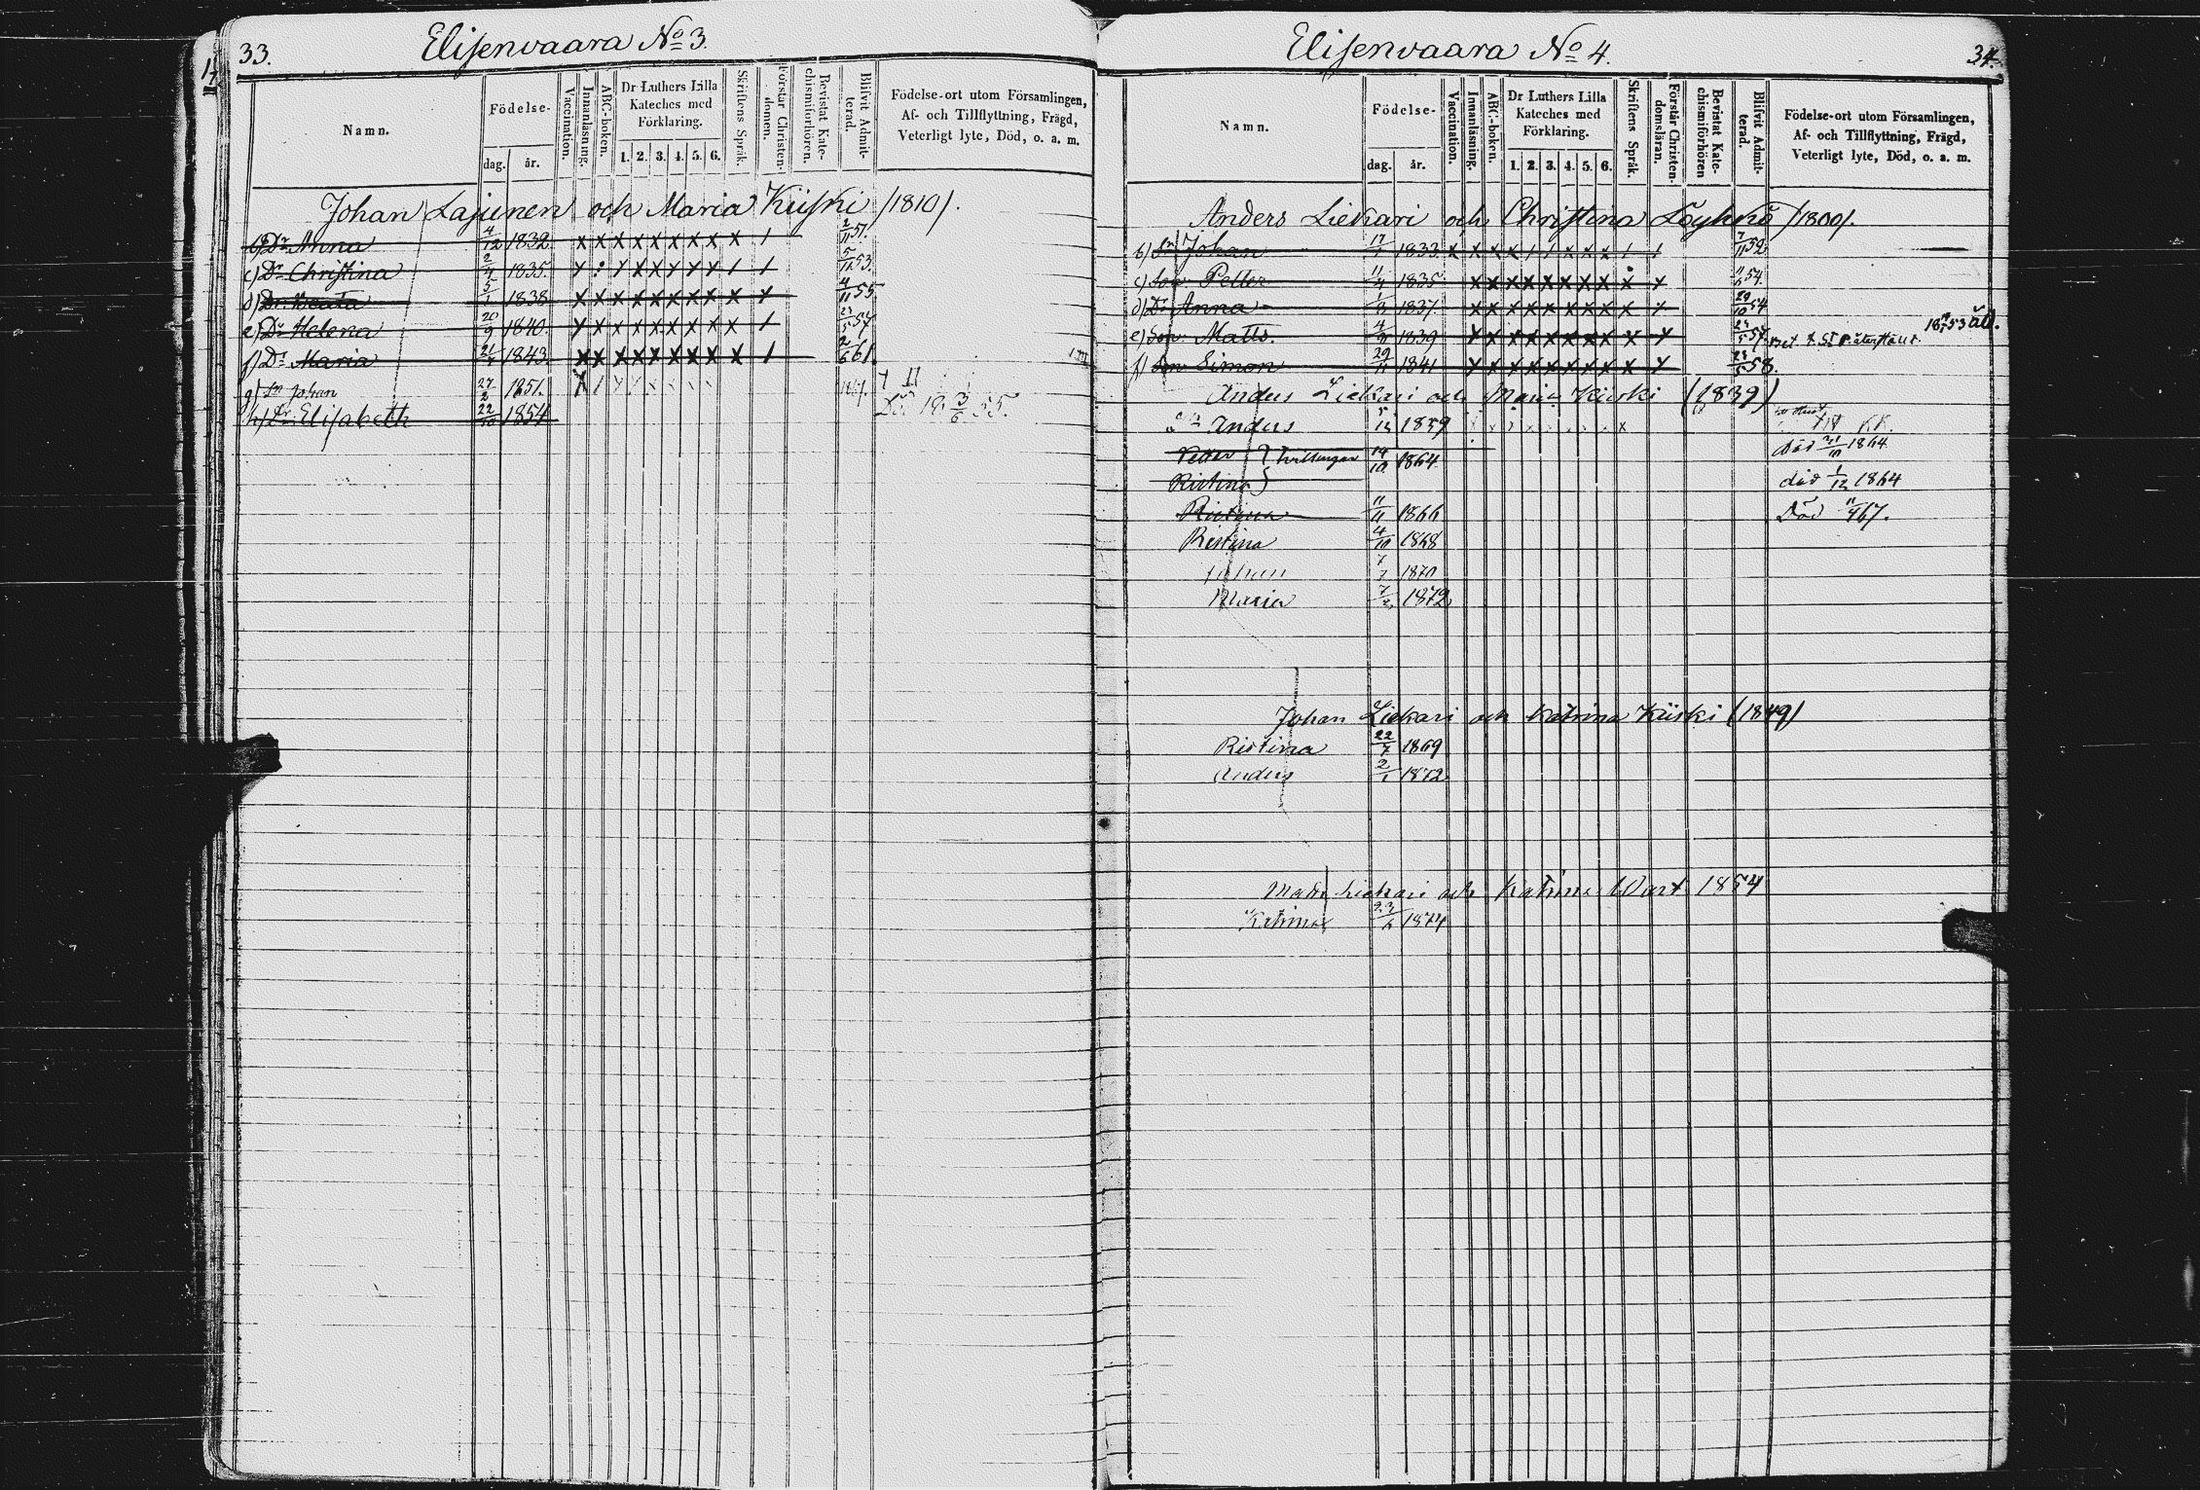 33.
Elisenvaara No 3.
Namn.
Födelse-
dag. år.
Vaccination.
Innanläsning.
ABC-boken.
Dr Luthers Lilla
Kateches med
Förklaring.
1. 2. 3. 4. 5. 6.
Skriftens Språk.
Förstår Christen-
domen.
Bevistat Kate-
chismiförhören.
Blifvit Admit-
terad.
Födelse-ort utom Församlingen,
Af- och Tillflyttning, Frägd,
Veterligt lyte, Död, o. a. m.
Johan Lajunen och Maria Kiiski /1810/.
b) Dr Anna 4/12 1832 x x x x x x x x x 1 2/11 51.
c) Dr Christina 1835. 5/11 53.
d) Dr Beata 5/1 1838 x x x x x x x x x 4/11 55
e) Dr Helena 20/9 1840. 57
f) Dr Maria 1843 x x x x x x x x x 1 2/6 61
g) Sn Johan 27/2 1851.
h) Dr Elisabeth 22/10 1854 Död 18 3/6 55.
Elisenvaara No 4.
34.
Namn.
Födelse-
dag. år.
Vaccination.
Innanläsning.
ABC-boken.
Dr Luthers Lilla
Kateches med
Förklaring.
1. 2. 3. 4. 5. 6.
Skriftens Språk.
Förstår Christen-
domsläran.
Bevistat Kate-
chismiförhören
Blifvit Admit-
terad.
Födelse-ort utom Församlingen,
Af- och Tillflyttning, Frägd,
Veterligt lyte, Död, o. a. m.
Anders Liekari och Christina Löyhkö /1800/.
b) Sn Johan 1833.
c) Son Petter 1835 54.
d) Dr Anna 1/8 1837. 29/10 54
e) Son Matts. 1839 57
f) Son Simon 29/11 1841 58.
Anders Liekari och Maria Kiiski (1839)
Anders 1859 KK.
Petter } Tvillingar 19/10 1864 Död 1864
Ristina } död 1/12 1864
Ristina 11/11 1866 Död 11/4 67.
Ristina 4/10 1868
Johan 1870
Maria 1872
Johan Liekari och Katrina Kiiski (1849)
Ristina 22/7 1869
Anders 2/1 1872
Matts Liekari och Katrina 1854
Katrina 1874